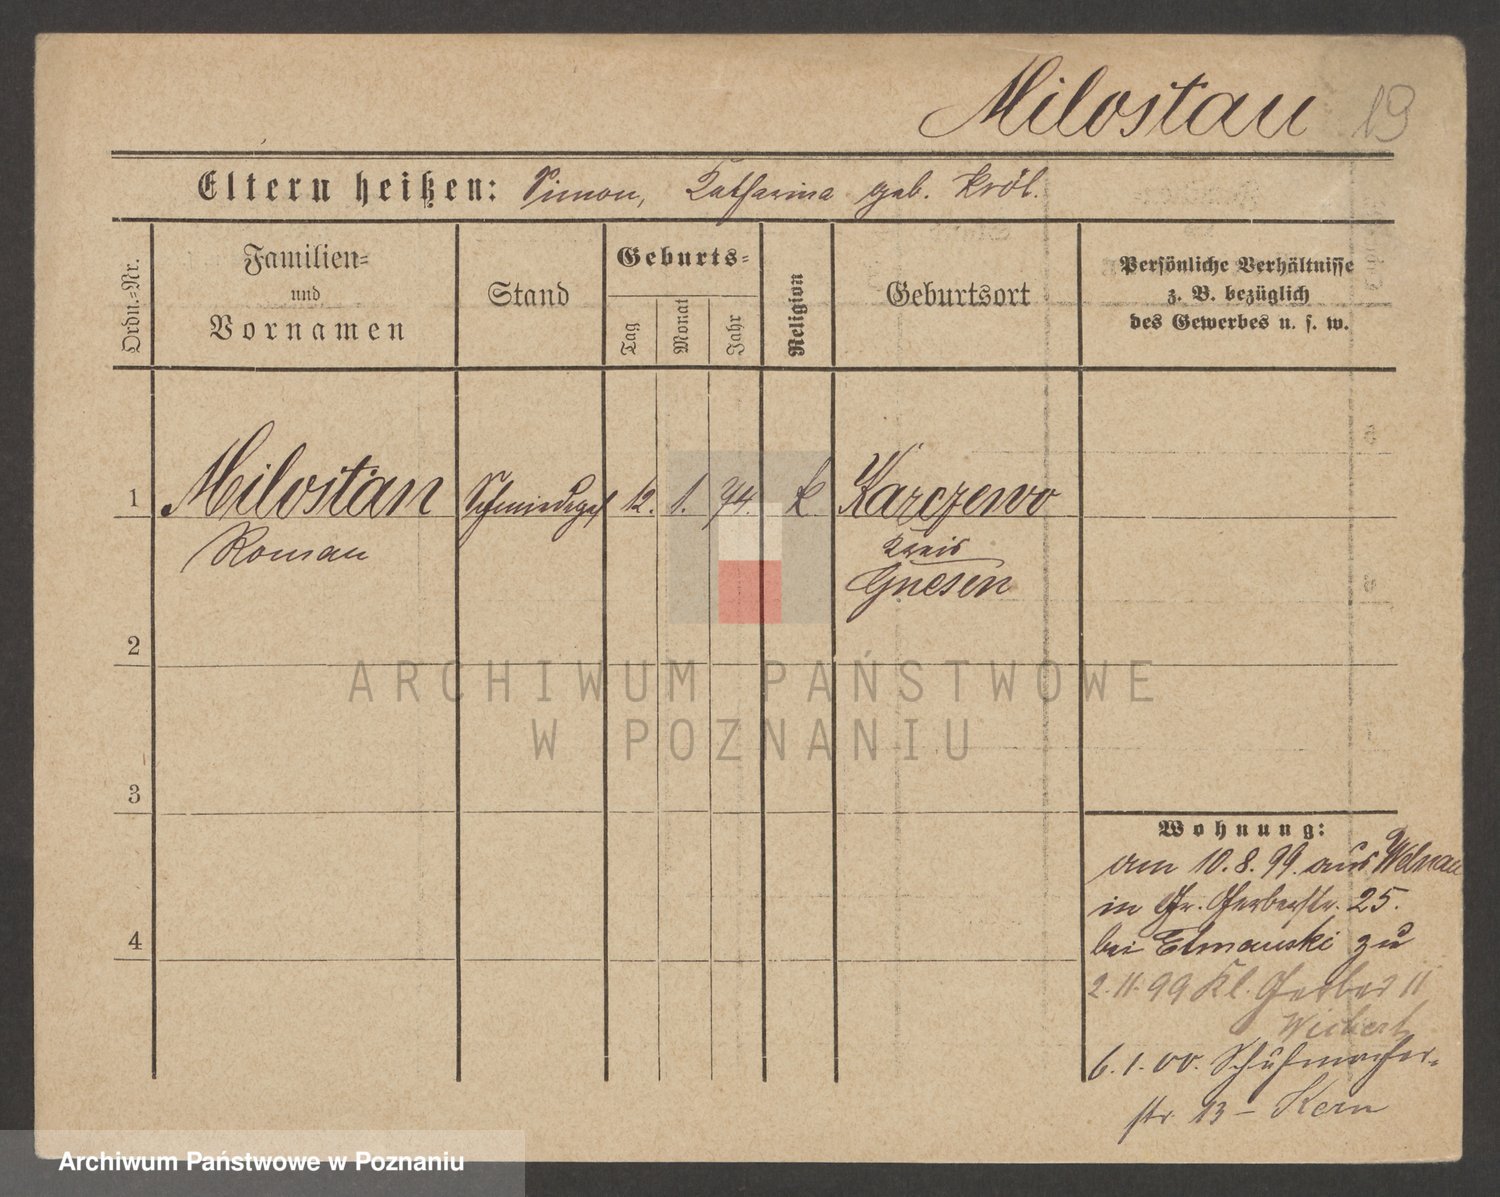 Milostan 19
Eltern heißen: Simon, Katharina geb. Król.
Ordn.-Nr.
Familien-
und
Vornamen
Stand
Geburts-
Tag
Monat
Jahr
Religion
Geburtsort
Persönliche Verhältnisse
z. B. bezüglich
des Gewerbes u. s. w.
1 Milostan Schmiedeges 12. 1. 74. k Karczewo
Roman Kreis
Gnesen
2
3
4
ARCHIWUM PAŃSTWOWE
W POZNANIU
Wohnung:
am 10.8.99. aus Welnau
in Gr. Gerberstr. 25.
bei Elmanski zu
2.11.99 Kl. Gerber 11
6.1.00. Schuhmacher-
str. 13 – Kern
Archiwum Państwowe w Poznaniu